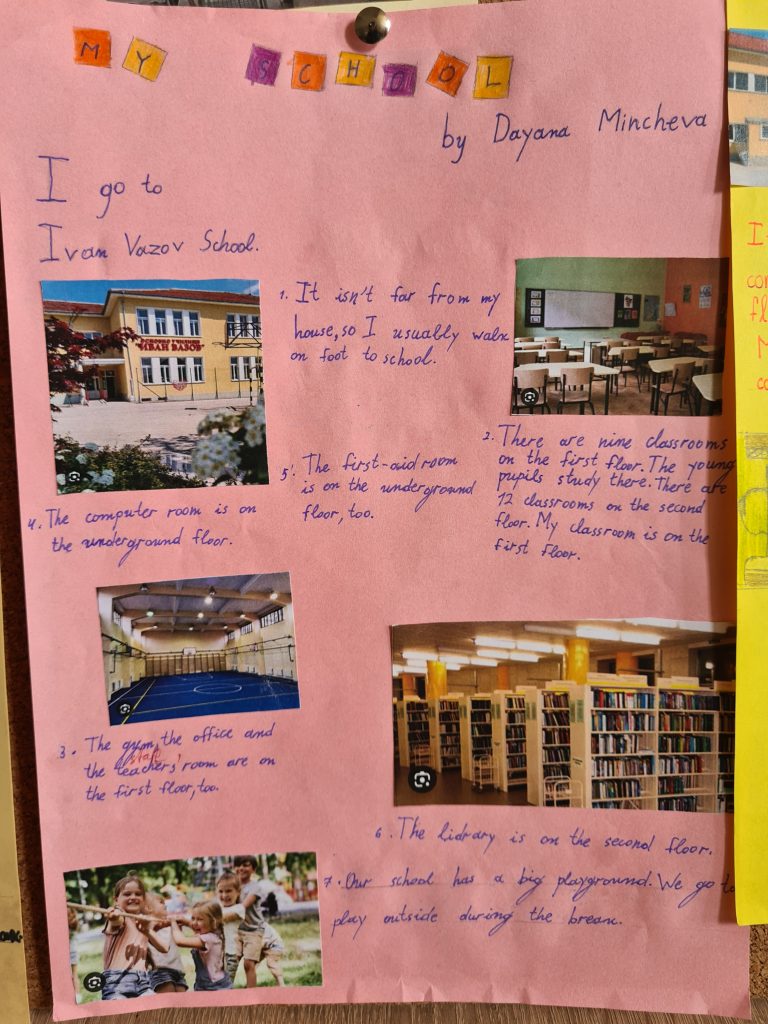 MY SCHOOL
by Dayana Mincheva
I go to
Ivan Vazov School.
ОСНОВНО УЧИЛИЩЕ
ИВАН ВАЗОВ
1. It isn't far from my
house, so I usually walk
on foot to school.
2. There are nine classrooms
on the first floor. The young
pupils study there. There are
12 classrooms on the second
floor. My classroom is on the
first floor.
5. The first-aid room
is on the underground
floor, too.
4. The computer room is on
the underground floor.
3. The gym, the office and
staff
the teachers' room are on
the first floor, too.
6. The lidrary is on the second floor.
7. Our school has a big playground. We go to
play outside during the break.